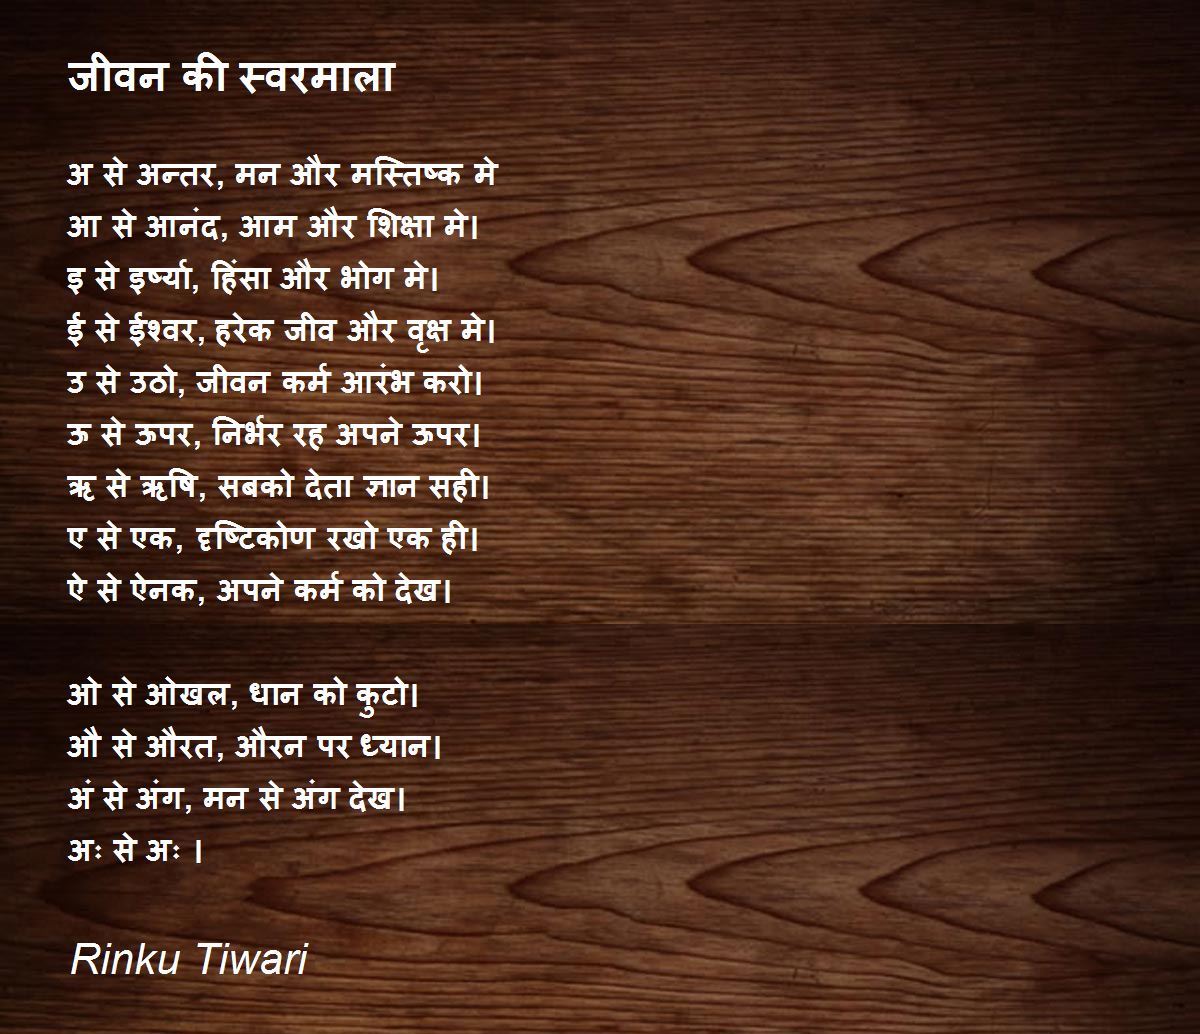 जीवन की स्वरमाला
अ से अन्तर, मन और मस्तिष्क मे
आ से आनंद, आम और शिक्षा मे।
इ से इर्ष्या, हिंसा और भोग मे।
ई से ईश्वर, हरेक जीव और वृक्ष मे।
उ से उठो, जीवन कर्म आरंभ करो।
ऊ से ऊपर, निर्भर रह अपने ऊपर।
ऋ से ऋषि, सबको देता ज्ञान सही।
ए से एक, दृष्टिकोण रखो एक ही।
ऐ से ऐनक, अपने कर्म को देख।
ओ से ओखल, धान को कुटो।
औ से औरत, औरन पर ध्यान।
अं से अंग, मन से अंग देख।
अः से अः ।
Rinku Tiwari